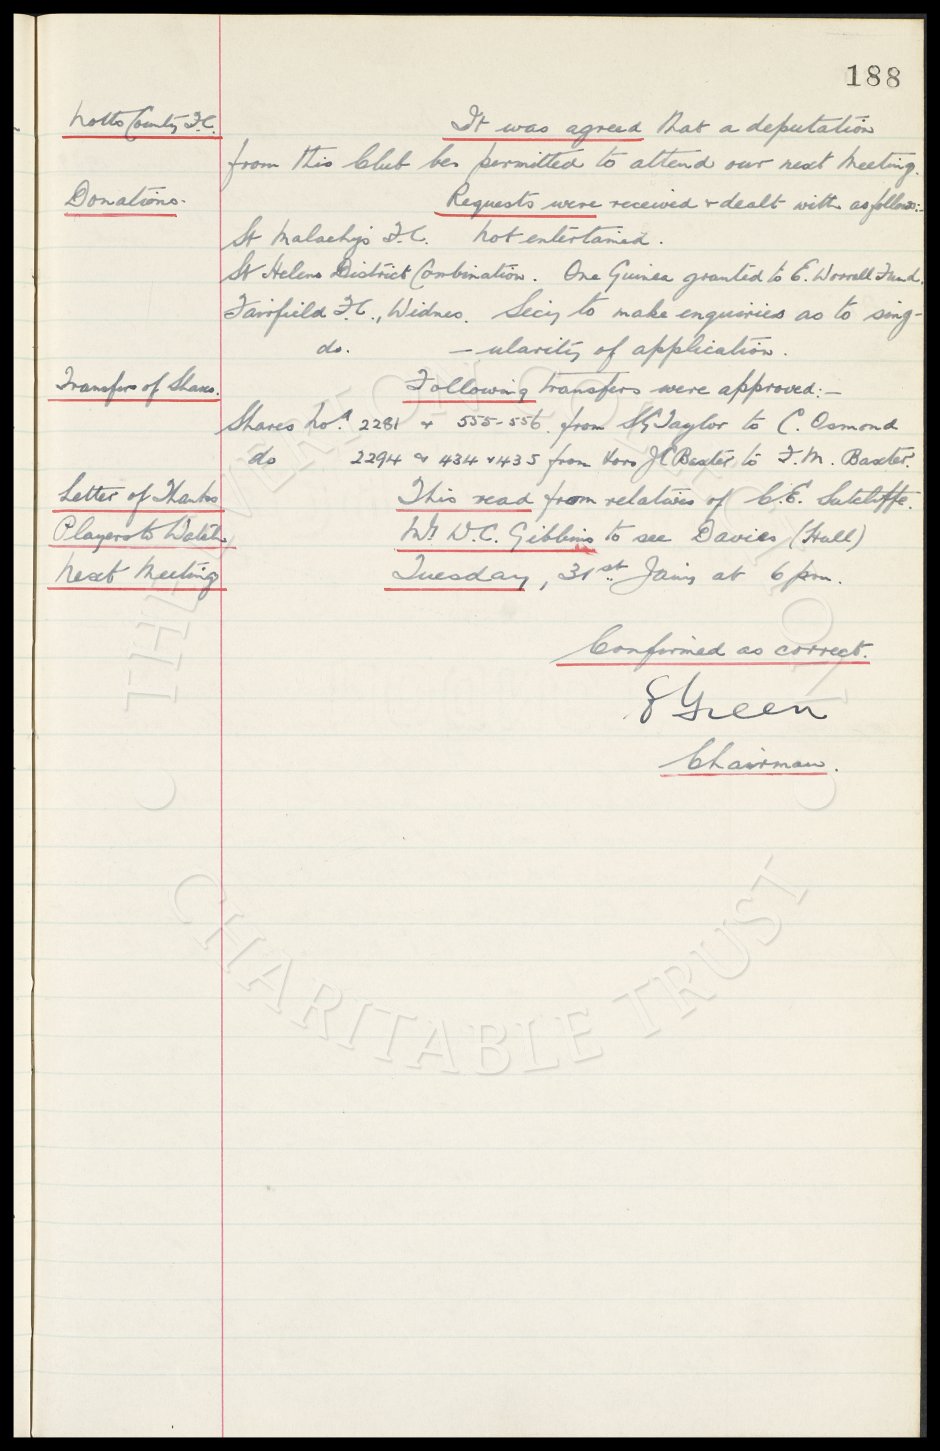 188
Notts County F.C. It was agreed that a deputation
from this Club be permitted to attend our next Meeting.
Donations. Requests were received & dealt with as follows:-
St Malachy's F.C. Not entertained.
St Helens District Combination. One Guinea granted to E. Worrall Fund.
Fairfield F.C., Widnes. Secy to make enquiries as to sing-
do. -ularity of application.
Transfers of Shares. Following transfers were approved:-
Shares Nos. 2281 & 555-556. from S G Taylor to C. Osmond
do 2294 & 434 & 435 from J C Baxter to F. M. Baxter.
Letter of Thanks This read from relatives of C. E. Sutcliffe.
Players to Watch Mr W. C. Gibbins to see Davies (Hull)
Next Meeting Tuesday, 31st Jany at 6 pm.
Confirmed as correct.
E Green
Chairman.
THE EVERTON COLLECTION
CHARITABLE TRUST